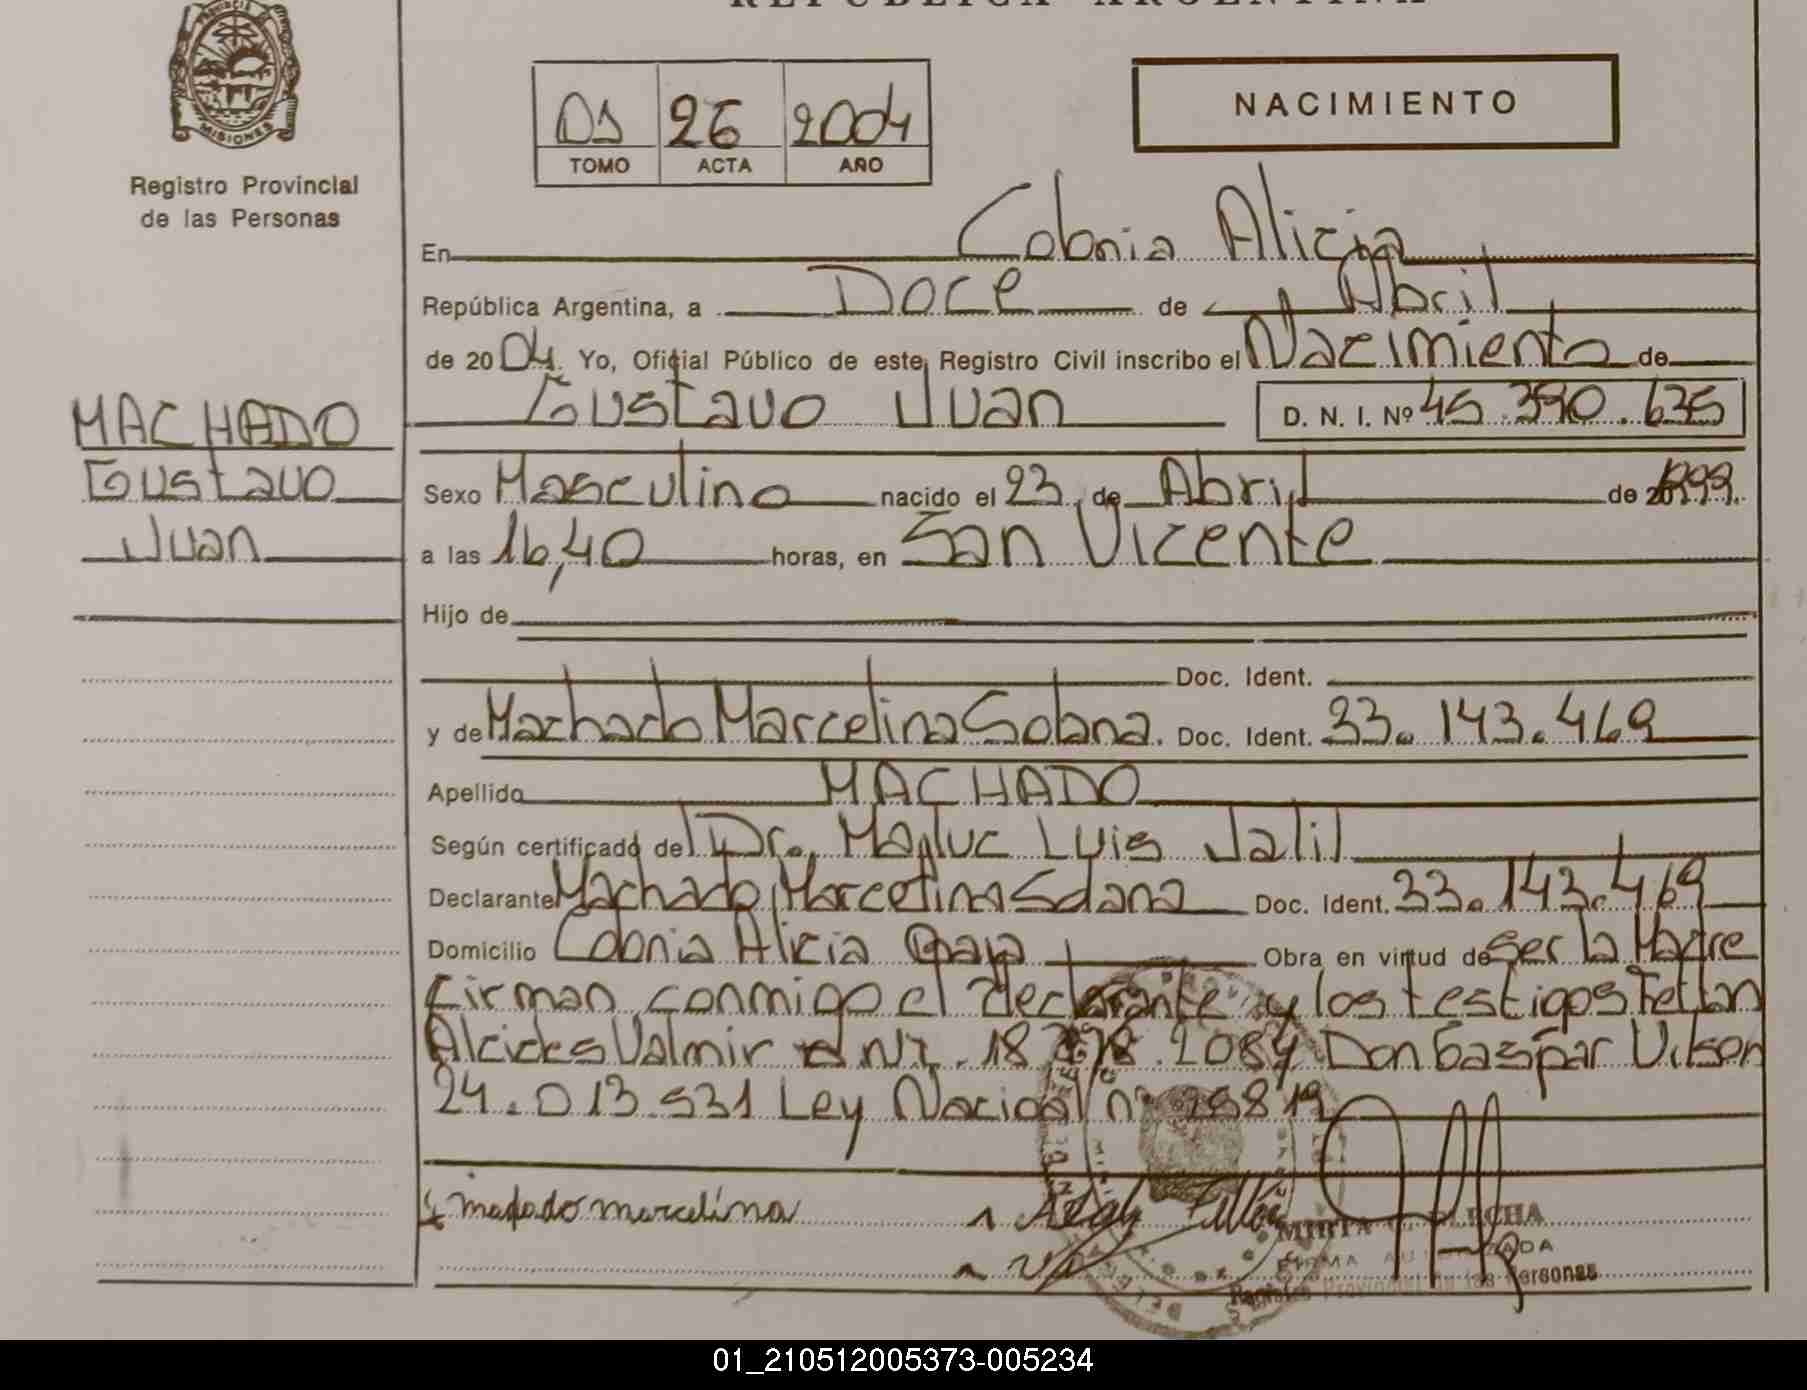 REPUBLICA ARGENTINA
PROVINCIA DE
MISIONES
Registro Provincial
de las Personas
01 26 2004
TOMO ACTA AÑO
NACIMIENTO
En Colonia Alicia
República Argentina, a Doce de Abril
de 2004. Yo, Oficial Público de este Registro Civil inscribo el Nacimiento de
Gustavo Juan D. N. I. Nº 45.390.635
MACHADO
Gustavo
Juan
Sexo Masculino nacido el 23 de Abril de 1999.
a las 16,40 horas, en San Vicente
Hijo de
Doc. Ident.
y de Machado Marcelina Solana. Doc. Ident. 33.143.469
Apellido MACHADO
Según certificado del Dr. Luis Jalil
Declarante Machado Marcelina Solana Doc. Ident. 33.143.469
Domicilio Colonia Alicia Obra en virtud de Ser la Madre
Firman conmigo el declarante y los testigos
Alcides Valmir 18 Don Gaspar Vilson
24.013.531 Ley Nacional nº 25819
machado marcelina
MIRTA
FIRMA AUTORIZADA
Registro Provincial de las Personas
01_210512005373-005234